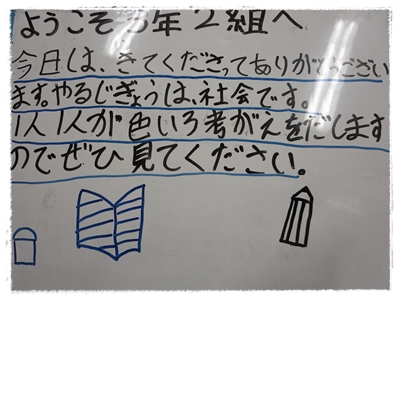 ようこそ5年2組へ
今日は、きてくださってありがとうござい
ます。やるじぎょうは、社会です。
1人1人が色いろ考がえをだします
のでぜひ見てください。